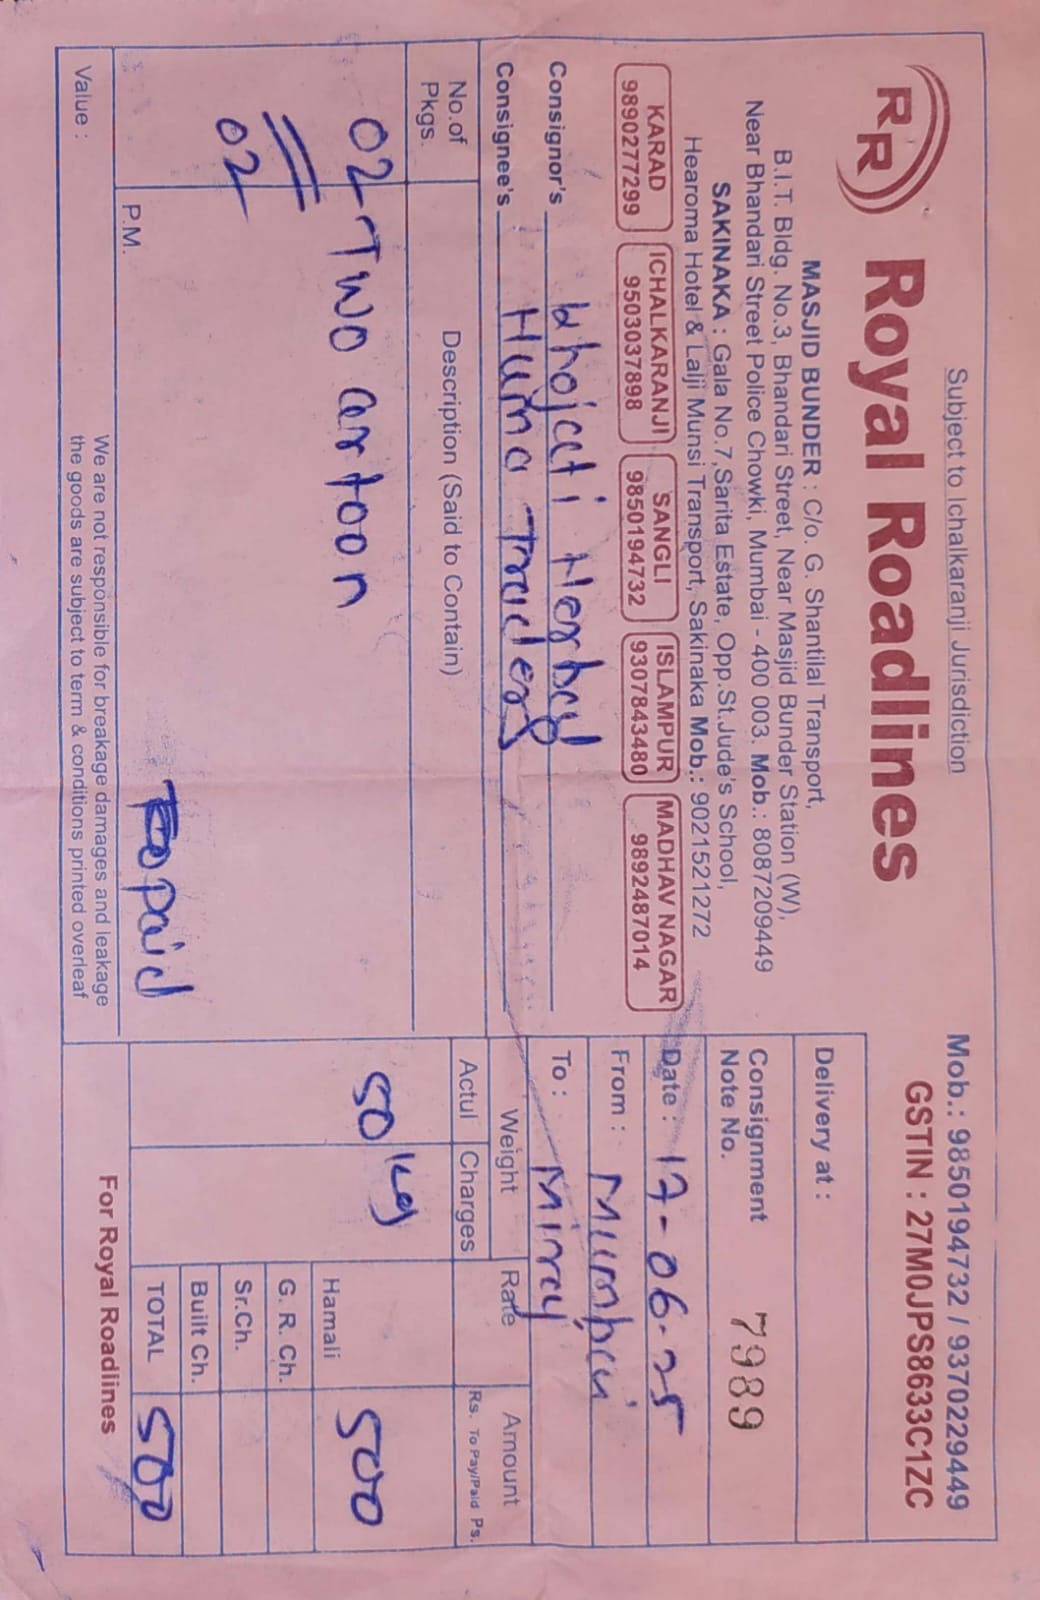 Subject to Ichalkaranji Jurisdiction
Mob.: 9850194732 / 9370229449
RR Royal Roadlines
GSTIN : 27M0JPS8633C1ZC
MASJID BUNDER : C/o. G. Shantilal Transport,
B.I.T. Bldg. No.3, Bhandari Street, Near Masjid Bunder Station (W),
Near Bhandari Street Police Chowki, Mumbai - 400 003. Mob.: 8087209449
SAKINAKA : Gala No.7,Sarita Estate, Opp.St.Jude's School,
Hearoma Hotel & Lalji Munsi Transport, Sakinaka Mob.: 9021521272
KARAD 9890277299
ICHALKARANJI 9503037898
SANGLI 9850194732
ISLAMPUR 9307843480
MADHAV NAGAR 9892487014
Delivery at :
Consignment Note No. 7989
Date : 17-06-25
From : Mumbai
To : Miraj
Consignor's Khojati Herbal
Consignee's Huma Traders
No.of Pkgs.
Description (Said to Contain)
Weight
Rate
Amount
Actul
Charges
Rs. To Pay/Paid Ps.
02 Two cartoon
50 kg
Hamali 500
02
G. R. Ch.
Sr.Ch.
Built Ch.
P.M.
Topaid
TOTAL 500
Value :
We are not responsible for breakage damages and leakage
the goods are subject to term & conditions printed overleaf
For Royal Roadlines